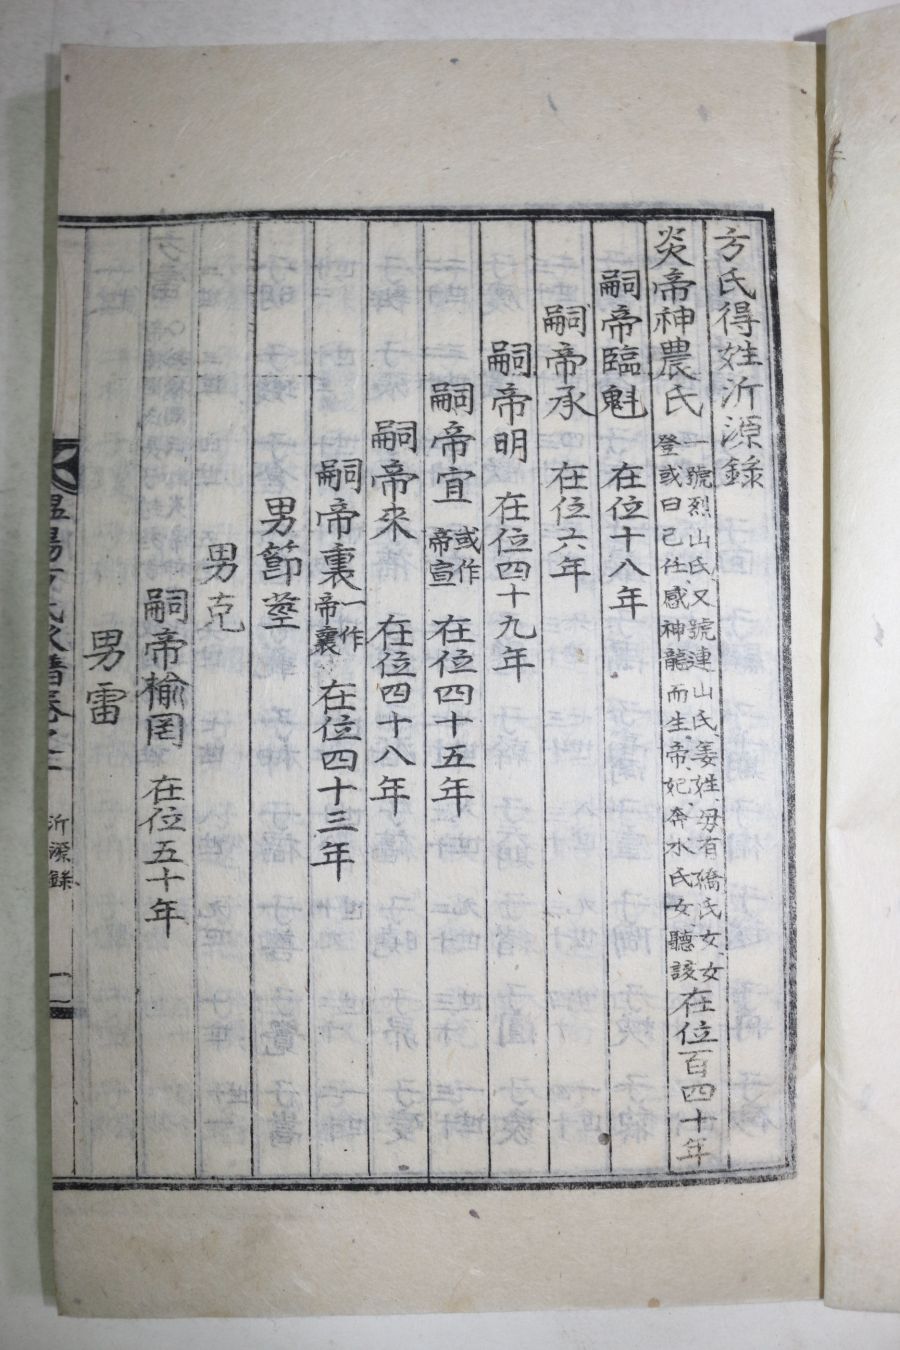 方氏得姓沂源錄
炎帝神農氏 一號烈山氏又號連山氏姜姓母有僑氏女女登或曰己仕感神龍而生帝妃奔水氏女聽該 在位百四十年
嗣帝臨魁 在位十八年
嗣帝承 在位六年
嗣帝明 在位四十九年
嗣帝宜 或作帝宣 在位四十五年
嗣帝來 在位四十八年
嗣帝裏 一作帝襄 在位四十三年
男節莖
男克
嗣帝榆罔 在位五十年
男雷
溫陽方氏族譜卷之一 沂源錄 一